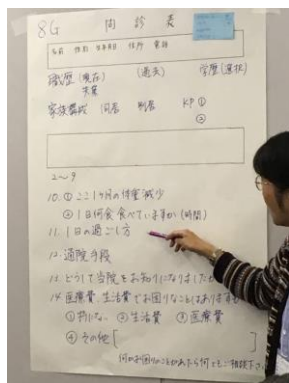 8G 問診表
名前 性別 生年月日 住所 電話
職歴(現在) (過去) 学歴(選択)
失業
家族構成 同居 別居 KP①
②
2〜9
10. ①ここ1ヶ月の体重減少
②1日何食食べていますか(時間)
11. 1日の過ごし方
12. 通院手段
13. どうして当院をお知りになりました
14. 医療費、生活費でお困りなことはありますか
①特にない ②生活費 ③医療費
④その他[ ]
何かお困りのことがあったら何でもご相談下さい